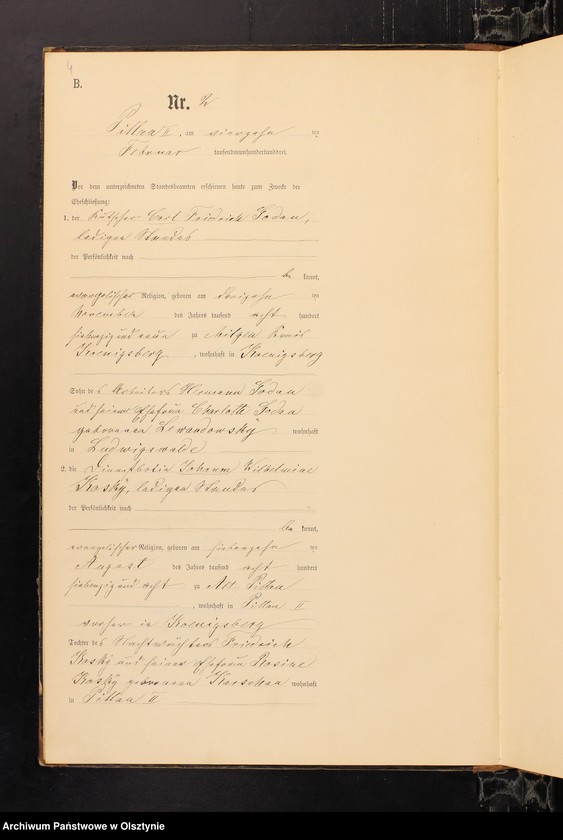 4
B.
Nr. 2
Pillau II, am vierzehn ten
Februar tausendneunhundertunddrei.
Vor dem unterzeichneten Standesbeamten erschienen heute zum Zwecke der
Eheschließung:
1. der Kutscher Carl Friedrich Jodau,
ledigen Standes
der Persönlichkeit nach
be kannt,
evangelischer Religion, geboren am dreizehn ten
November des Jahres tausend acht hundert
siebenzig und neun zu Kreis
Koenigsberg, wohnhaft in Koenigsberg
Sohn des Arbeiters Hermann Jodau
und seiner Ehefrau Charlotte Jodau
geborenen Lewandowsky wohnhaft
in Ludwigswalde
2. die Dienstbotin Johanne Wilhelmine
Kosky, ledigen Standes
der Persönlichkeit nach
be kannt,
evangelischer Religion, geboren am siebenzehn ten
August des Jahres tausend acht hundert
siebenzig und acht zu Alt Pillau
, wohnhaft in Pillau II
vorher in Koenigsberg
Tochter des Nachtwächters Friedrich
Kosky und seiner Ehefrau Rosine
Kosky geborenen wohnhaft
in Pillau II
Archiwum Państwowe w Olsztynie